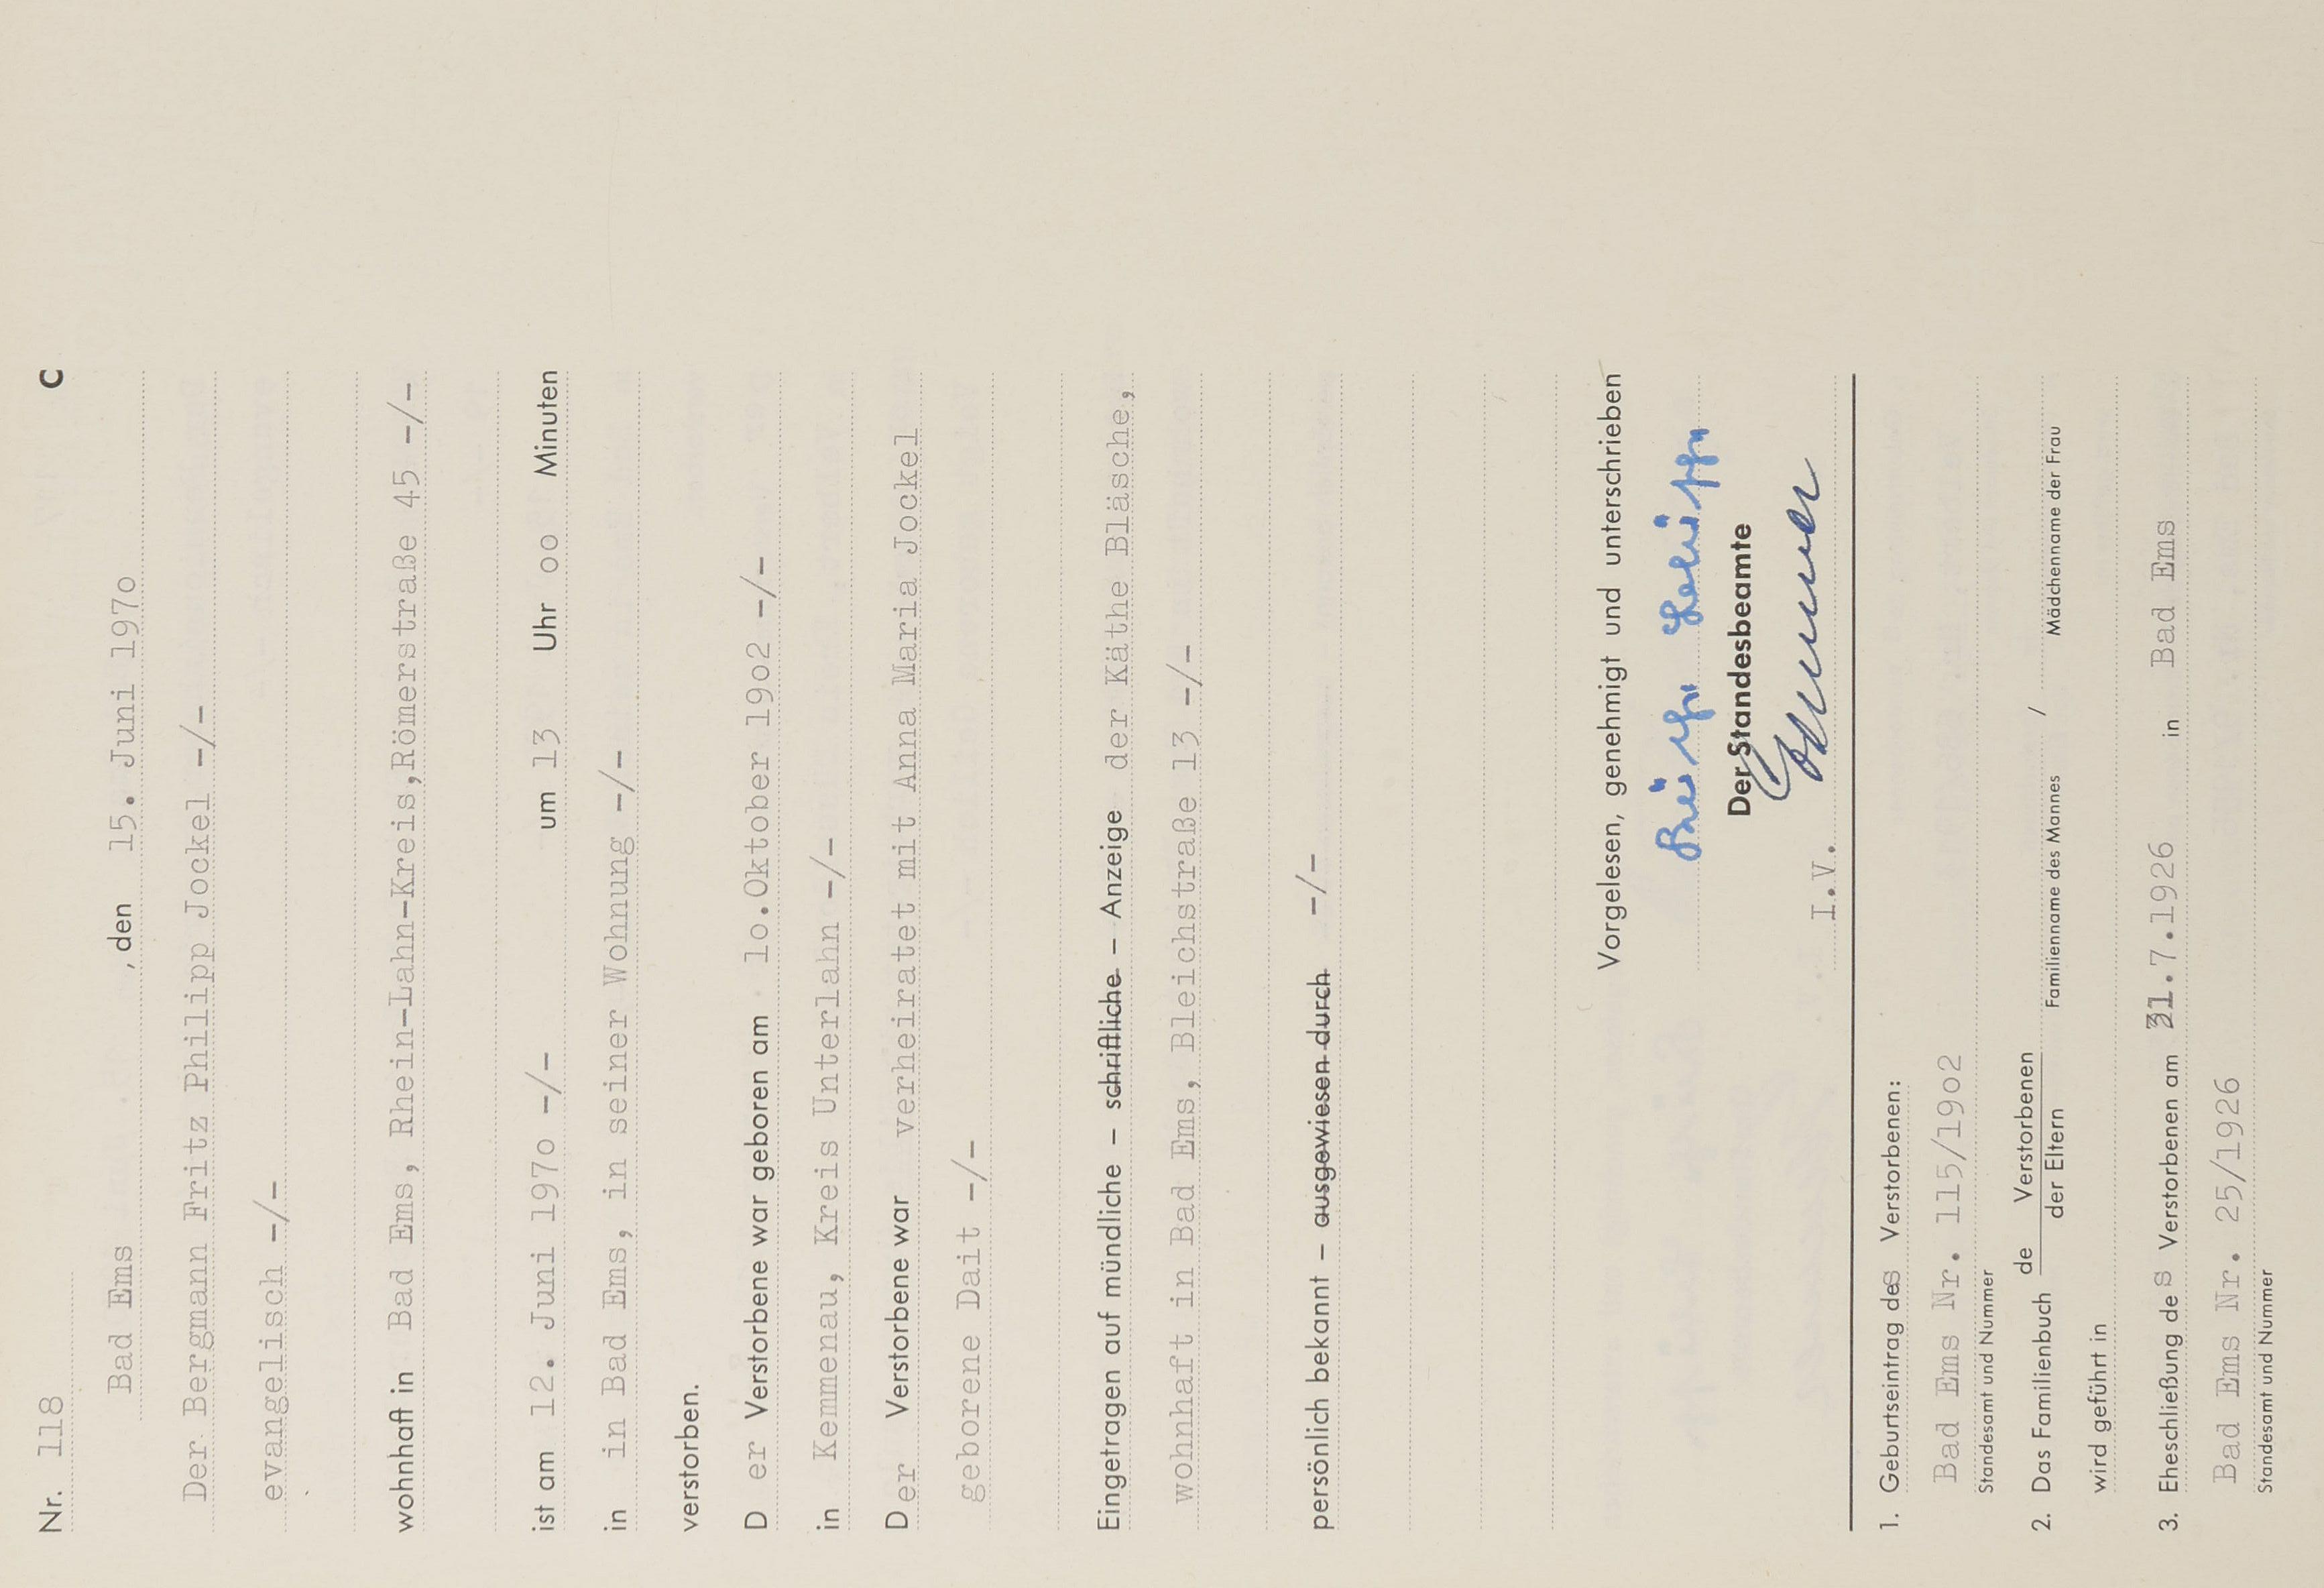 Nr. 118 C
Bad Ems , den 15. Juni 1970
Der Bergmann Fritz Philipp Jockel -/-
evangelisch -/-
wohnhaft in Bad Ems, Rhein-Lahn-Kreis,Römerstraße 45 -/-
ist am 12. Juni 1970 -/- um 13 Uhr oo Minuten
in in Bad Ems, in seiner Wohnung -/-
verstorben.
D er Verstorbene war geboren am 1o.Oktober 19o2 -/-
in Kemmenau, Kreis Unterlahn -/-
D er Verstorbene war verheiratet mit Anna Maria Jockel
geborene Dait -/-
Eingetragen auf mündliche – schriftliche – Anzeige der Käthe Bläsche,
wohnhaft in Bad Ems, Bleichstraße 13 -/-
persönlich bekannt – ausgewiesen durch -/-
Vorgelesen, genehmigt und unterschrieben
Der Standesbeamte
I.V.
1. Geburtseintrag des Verstorbenen:
Bad Ems Nr. 115/19o2
Standesamt und Nummer
2. Das Familienbuch de Verstorbenen
der Eltern
/
Familienname des Mannes Mädchenname der Frau
wird geführt in
3. Eheschließung de s Verstorbenen am 31.7.1926 in Bad Ems
Bad Ems Nr. 25/1926
Standesamt und Nummer